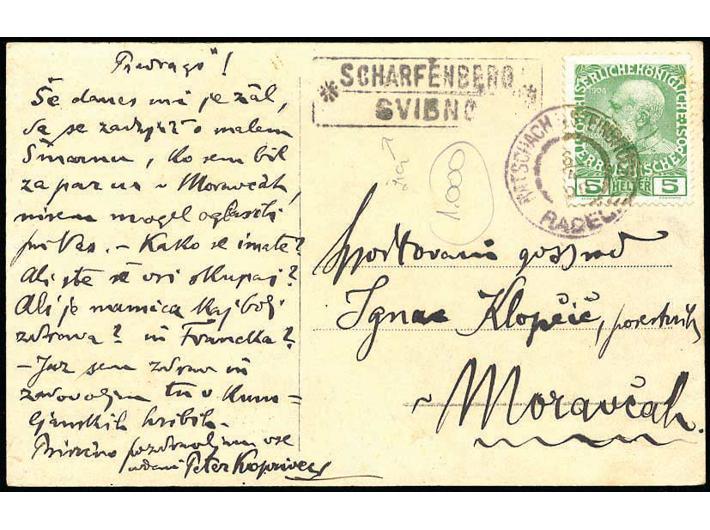 Predragi!
Še danes mi je žal,
da se zadnjič o malem
Šmarnu, ko sem bil
za par ur v Moravčah,
nisem mogel oglasiti
pri Vas. – Kako se imate?
Ali ste še vsi skupaj?
Ali je mamica kaj bolj
zdrava? in Francka?
– Jaz sem zdrav in
zadovoljen tu v Kum-
ljanskih hribih.
Prisrčno pozdravljam vse
udani Peter Koprivec
* SCHARFENBERG *
SVIBNO
žig
1.000
RATSCHACH
RADEČE
KAISERLICHE KÖNIGLICHE ÖSTERREICHISCHE POST
1908
5 HELLER 5
Spoštovani gospod
Ignac Klopčič, posestnik
v Moravčah.